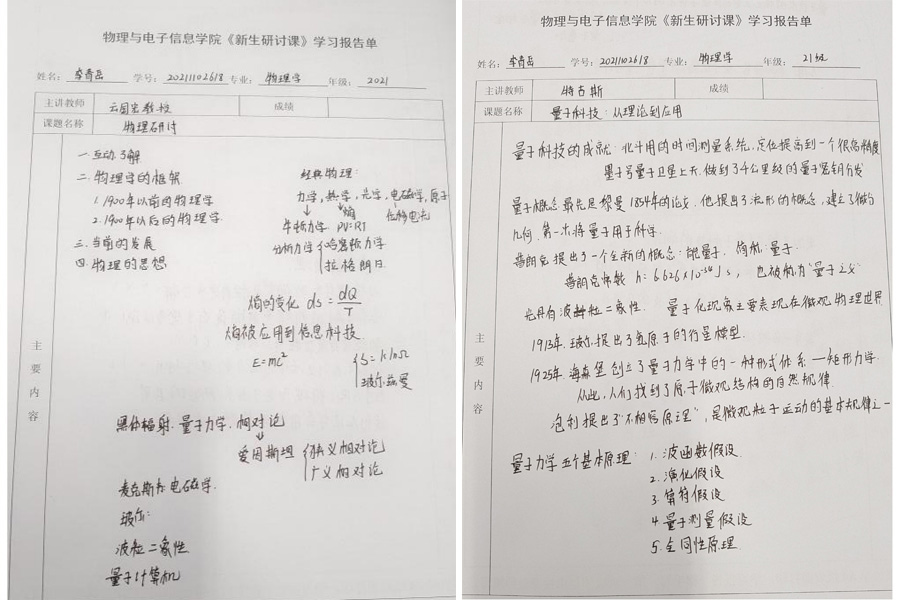 物理与电子信息学院《新生研讨课》学习报告单
姓名: 李青岳 学号: 20211102618 专业: 物理学 年级: 2021
主讲教师 云国宏教授 成绩
课题名称 物理研讨
主要内容
一.互动了解
二.物理学的框架
1.1900年以前的物理学
2.1900年以后的物理学
三.当前的发展
四.物理的思想
经典物理:
力学,热学,光学,电磁学,原子
↓ ↓熵 位移电流
牛顿力学 PV=RT
分析力学{哈密顿力学
拉格朗日
熵的变化 ds=dQ/T
熵被应用到信息科技
E=mc²
{S=klnΩ
玻尔兹曼
黑体辐射.量子力学.相对论
↓
爱因斯坦{狭义相对论
广义相对论
麦克斯韦电磁学.
玻尔:
波粒二象性
量子计算机
物理与电子信息学院《新生研讨课》学习报告单
姓名: 李青岳 学号: 20211102618 专业: 物理学 年级: 21级
主讲教师 特古斯 成绩
课题名称 量子科技:从理论到应用
主要内容
量子科技的成就:北斗用的时间测量系统,定位提高到一个很高精度
墨子号量子卫星上天.做到了千公里级的量子密钥分发
量子概念最先是黎曼1854年的论文.他提出了流形的概念,建立了微分
几何.第一次将量子用于科学.
普朗克提出了一个全新的概念:能量子.简称:量子.
普朗克常数 h:6.626×10⁻³⁴J s, 也被称为"量子之父"
光具有波粒二象性. 量子化现象主要表现在微观物理世界
1913年.玻尔提出了氢原子的行星模型.
1925年.海森堡创立了量子力学中的一种形式体系——矩形力学.
从此,人们找到了原子微观结构的自然规律.
泡利提出了"不相容原理",是微观粒子运动的基本规律之一
量子力学五个基本原理: 1.波函数假设.
2.演化假设
3.算符假设
4.量子测量假设
5.全同性原理.